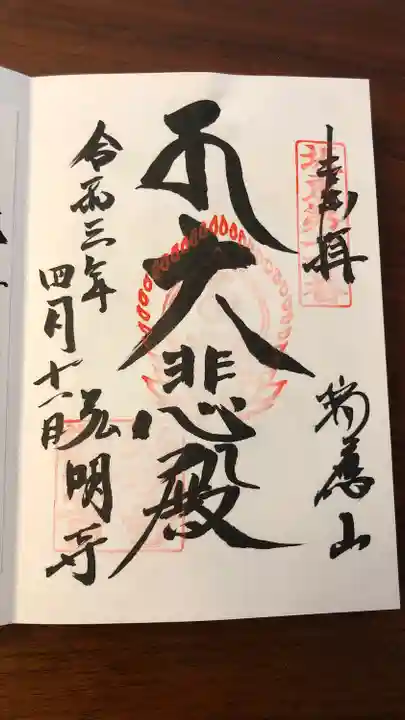 奉拝
瑞應山
大悲殿
令和三年
四月十一日
弘明寺